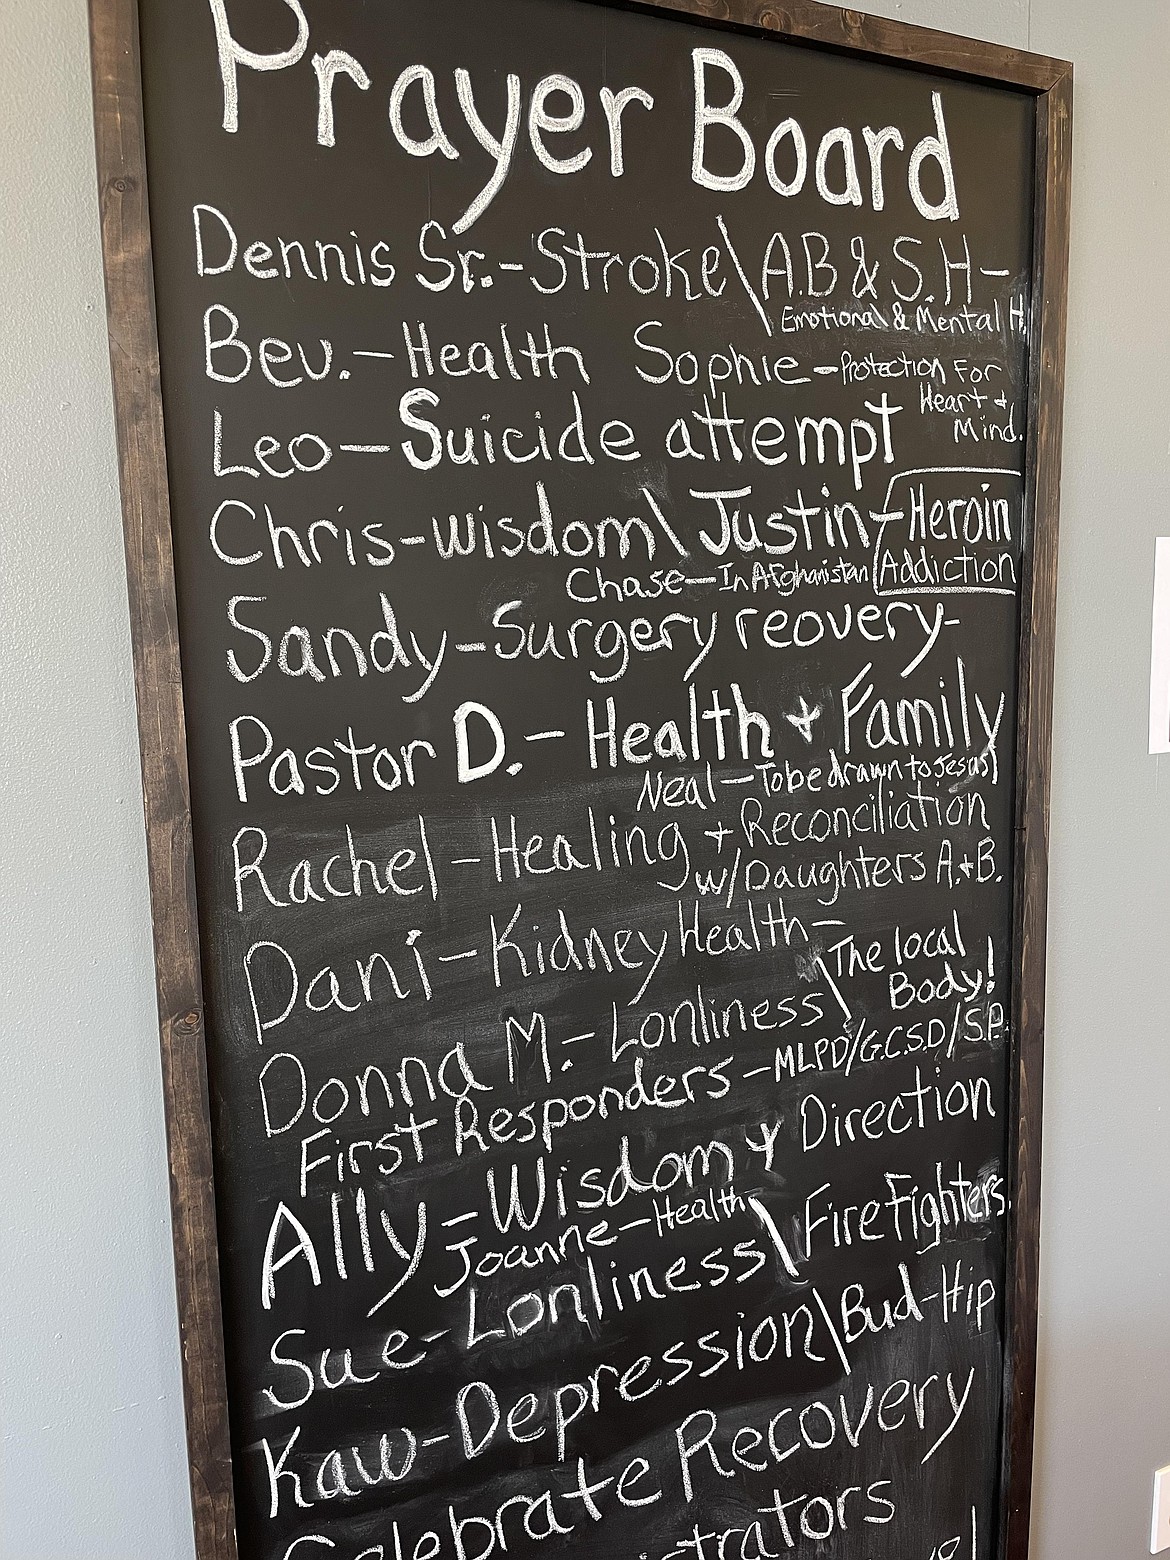 Prayer Board
Dennis Sr.-Stroke\A.B & S.H-
Emotional & Mental H.
Bev.-Health Sophie-Protection For
Heart +
Mind.
Leo-Suicide attempt
Chris-wisdom\Justin-Heroin
Addiction
Chase-In Afghanistan
Sandy-Surgery reovery-
Pastor D.-Health + Family
Neal-To be drawn to Jesus
Rachel-Healing + Reconciliation
w/Daughters A.+B.
Dani-Kidney Health-
The local
Body!
Donna M.-Lonliness\
First Responders-MLPD/G.C.S.D/S.P.
Ally-Wisdom + Direction
Joanne-Health
Sue-Lonliness\FireFighters.
Kaw-Depression\Bud-Hip
Celebrate Recovery